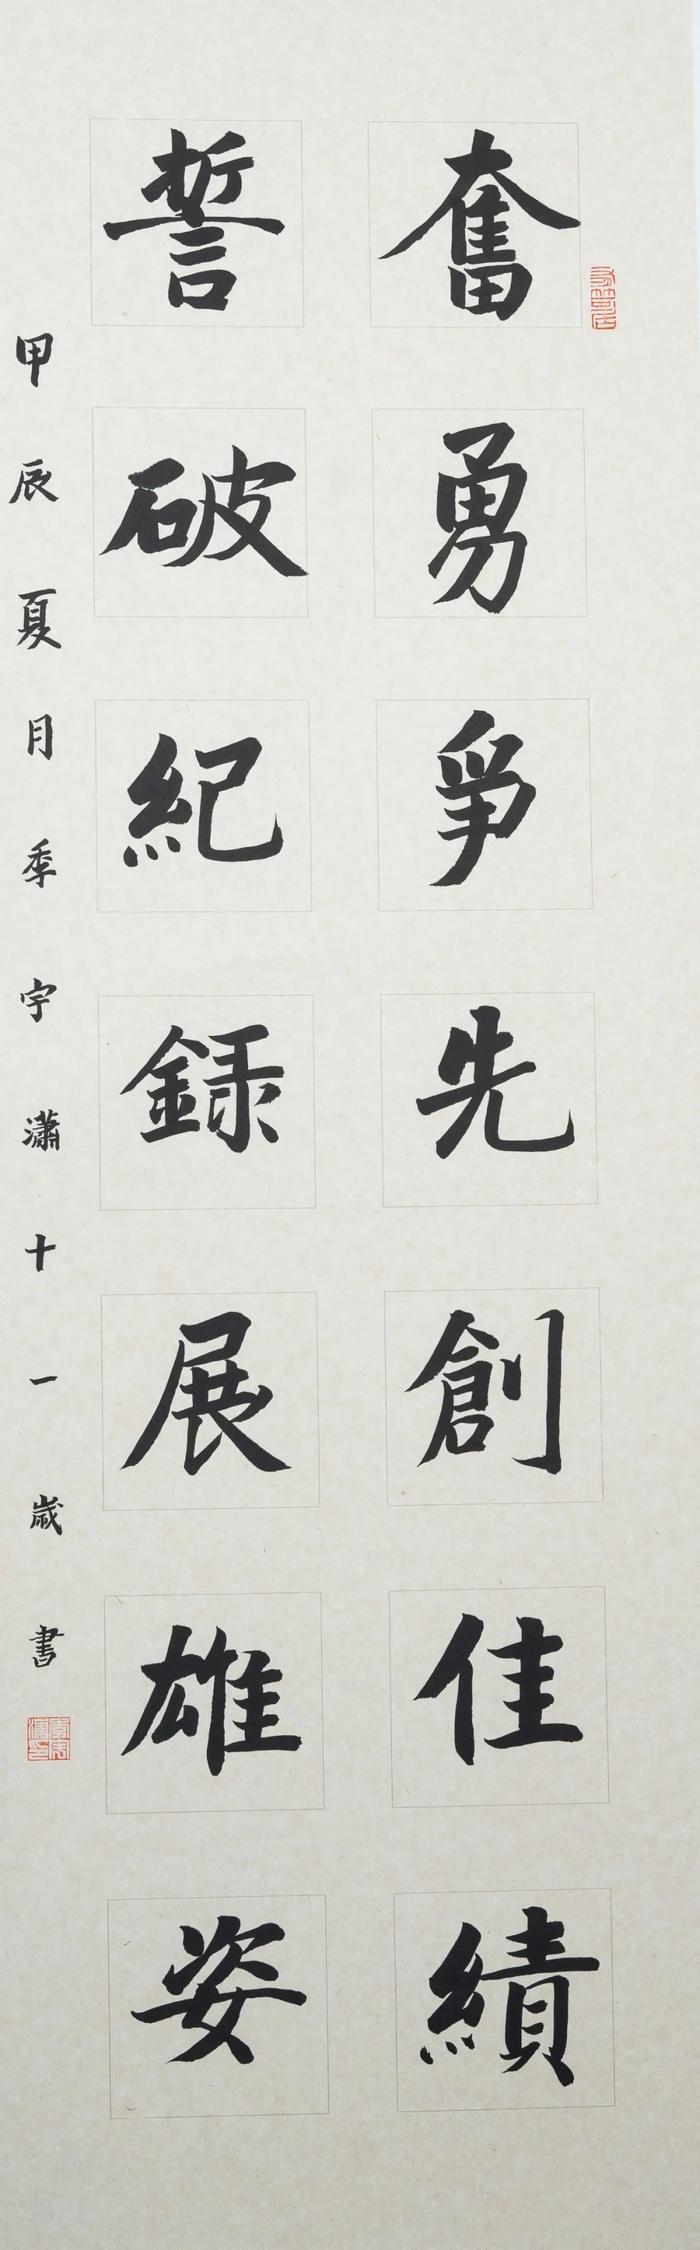 奮勇爭先創佳績
誓破紀録展雄姿
甲辰夏月季宇瀟十一歲書